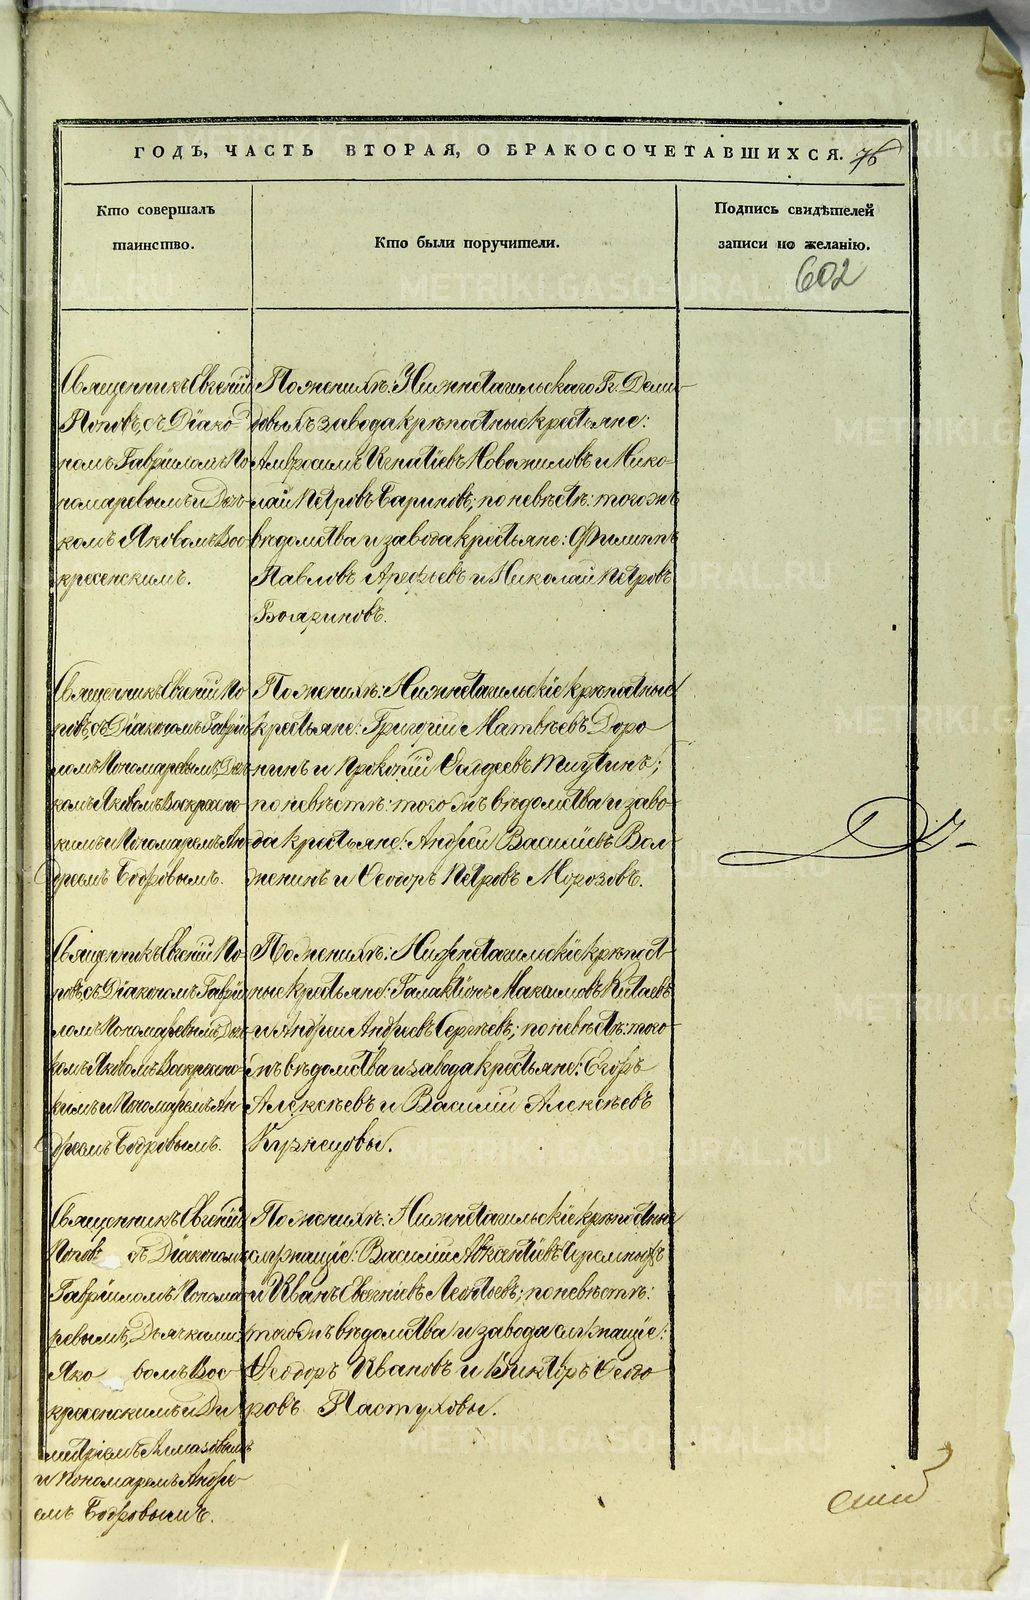 ГОДЪ, ЧАСТЬ ВТОРАЯ, О БРАКОСОЧЕТАВШИХСЯ. 76
Кто совершалъ
таинство.
Кто были поручители.
Подпись свидѣтелей
записи по желанію.
602
Священникъ Евгеній
Поповъ, съ Діако-
номъ Гавріиломъ По
номаревымъ и Дьяч
комъ Яковомъ Вос
кресенскимъ.
По женихѣ: Нижнетагильскаго Гг. Деми-
довыхъ завода крѣпостные крестьяне:
Амвросимъ Игнатіевъ Новожиловъ и Нико-
лай Петровъ Бариновъ; по невѣстѣ: того жъ
вѣдомства и завода крестьяне: Филиппъ
Павловъ Арефьевъ и Николай Петровъ
Бояриновъ.
Священникъ Евгеній По
повъ, съ Діакономъ Гаврі
ломъ Пономаревымъ, Дьяч
комъ Яковомъ Воскресенс
кимъ и Пономаремъ Ан
дреемъ Бобровымъ.
По женихѣ: Нижнетагильскіе крѣпостные
крестьяне: Григорій Матвѣевъ Доро
нинъ и Прокопій Фаддеевъ;
по невѣстѣ: того жъ вѣдомства и заво-
да крестьяне: Андрей Василіевъ Вол-
женинъ и Ѳеодоръ Петровъ Морозовъ.
Священникъ Евгеній По
повъ, съ Діакономъ Гаврі
ломъ Пономаревымъ, Дьяч
комъ Яковомъ Воскресенс
кимъ и Пономаремъ Ан
дреемъ Бобровымъ.
По женихѣ: Нижнетагильскіе крѣпост-
ные крестьяне: Галактіонъ Максимовъ Китаевъ
и Андрей Андреевъ Сергѣевъ; по невѣстѣ: того-
жъ вѣдомства и завода крестьяне: Егоръ
Алексѣевъ и Василій Алексѣевъ
Кузнецовы.
Священникъ Евгеній
Поповъ съ Діакономъ
Гавріиломъ Понома
ревымъ, Дьячками:
Яко вомъ Вос-
кресенскимъ и Ди
митріемъ Алмазовымъ
и Пономаремъ Андре-
емъ Бобровымъ.
По женихѣ: Нижнетагильскіе крѣпостные
служащіе: Василій Авксентіевъ
и Иванъ Евгеніевъ Леонтьевъ; по невѣстѣ:
того жъ вѣдомства и завода служащіе:
Ѳеодоръ Ивановъ и Викторъ Ѳеодо
ровъ Пастуховы.
METRIKI.GASO-URAL.RU